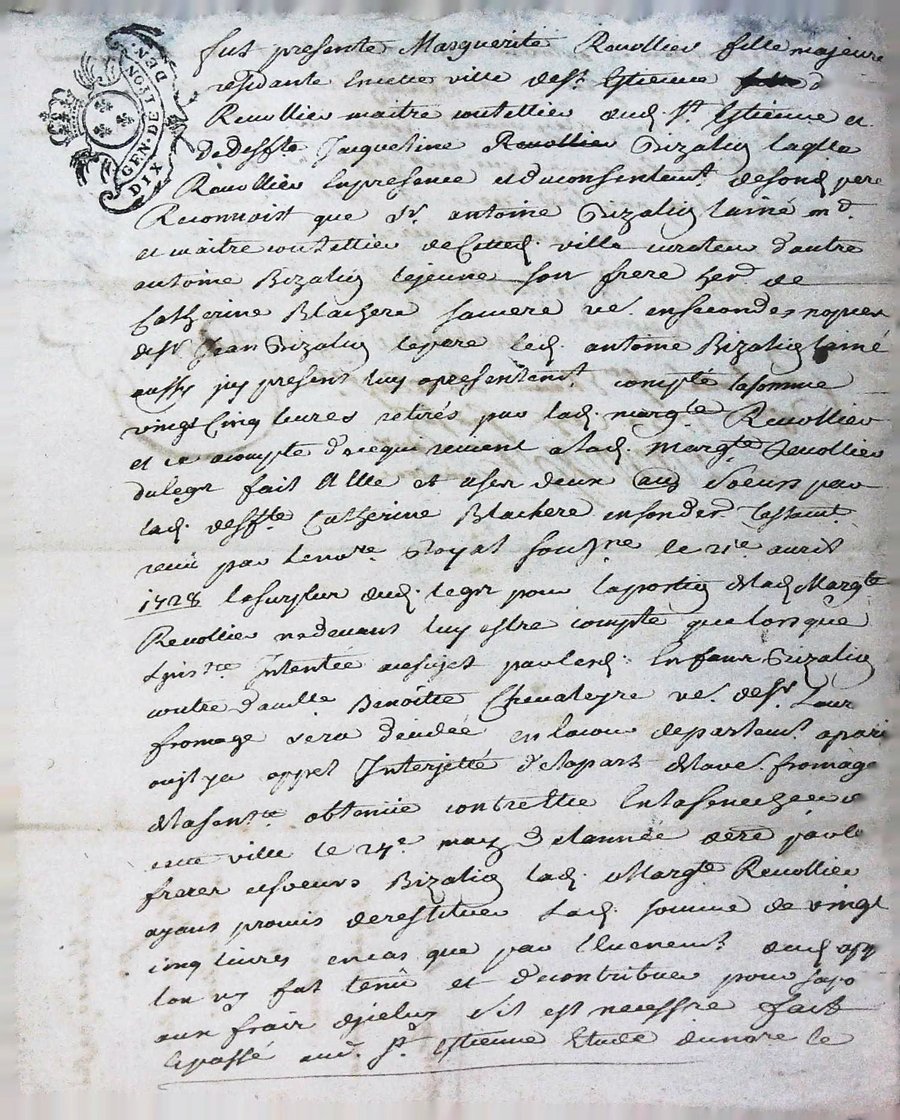 GEN. DE LION
DIX DEN
fut presente Marguerite Revollier fille majeure
residante en cette ville de St Estienne
Revollier maitre coutellier aud. St Estienne et
de deffte Jacqueline Bizalion laqlle
Revollier en presence et du consentemt. de sond. pere
Reconnoist que Sr. antoine Bizalion lainé md.
et maitre coutellier de Cetted. ville curateur d'autre
antoine Bizalion le jeune son frere her. de
Catherine Blachere sa mere ve. en secondes nopces
de Sr Jean Bizalion le pere led. antoine Bizalion lainé
aussy jcy present luy a presentemt. compté la somme
vingt Cinq livres retirés par lad. margte Revollier
et ce a compte d'acquirement a lad. margte Revollier
du legt fait a Elle et a ses deux soeurs par
lad. deffte Catherine Blachere en son der testamt.
receu par le nore Royal sousne le 21e avril
1728 le surplus dud. legt pour la portion de lad. Margte
Revollier ne devant luy estre compté que lorsque
Linstce Intentée au sujet par led. Bizalion
contre d'aville Benoitte Chevaleyre ve. de Sr. Laur
fromage sera decidée en la cour de parlemt a pari
ou il y a appel Interjetté de la part de la ve. fromage
de la sentce obtenüe contre Elle En la senechaucee
cette ville le 24e may de l'année dere par le
freres et soeurs Bizalion lad. Margte Revollier
ayant promis de restituer Lad. somme de vingt
cinq livres en cas que par l'Evenemt dud. app
lon ny fut tenü et de contribuer pour sa po
aux frais d'jcelui s'il est necessre fait
et passé aud. St Estienne Etude du nore le